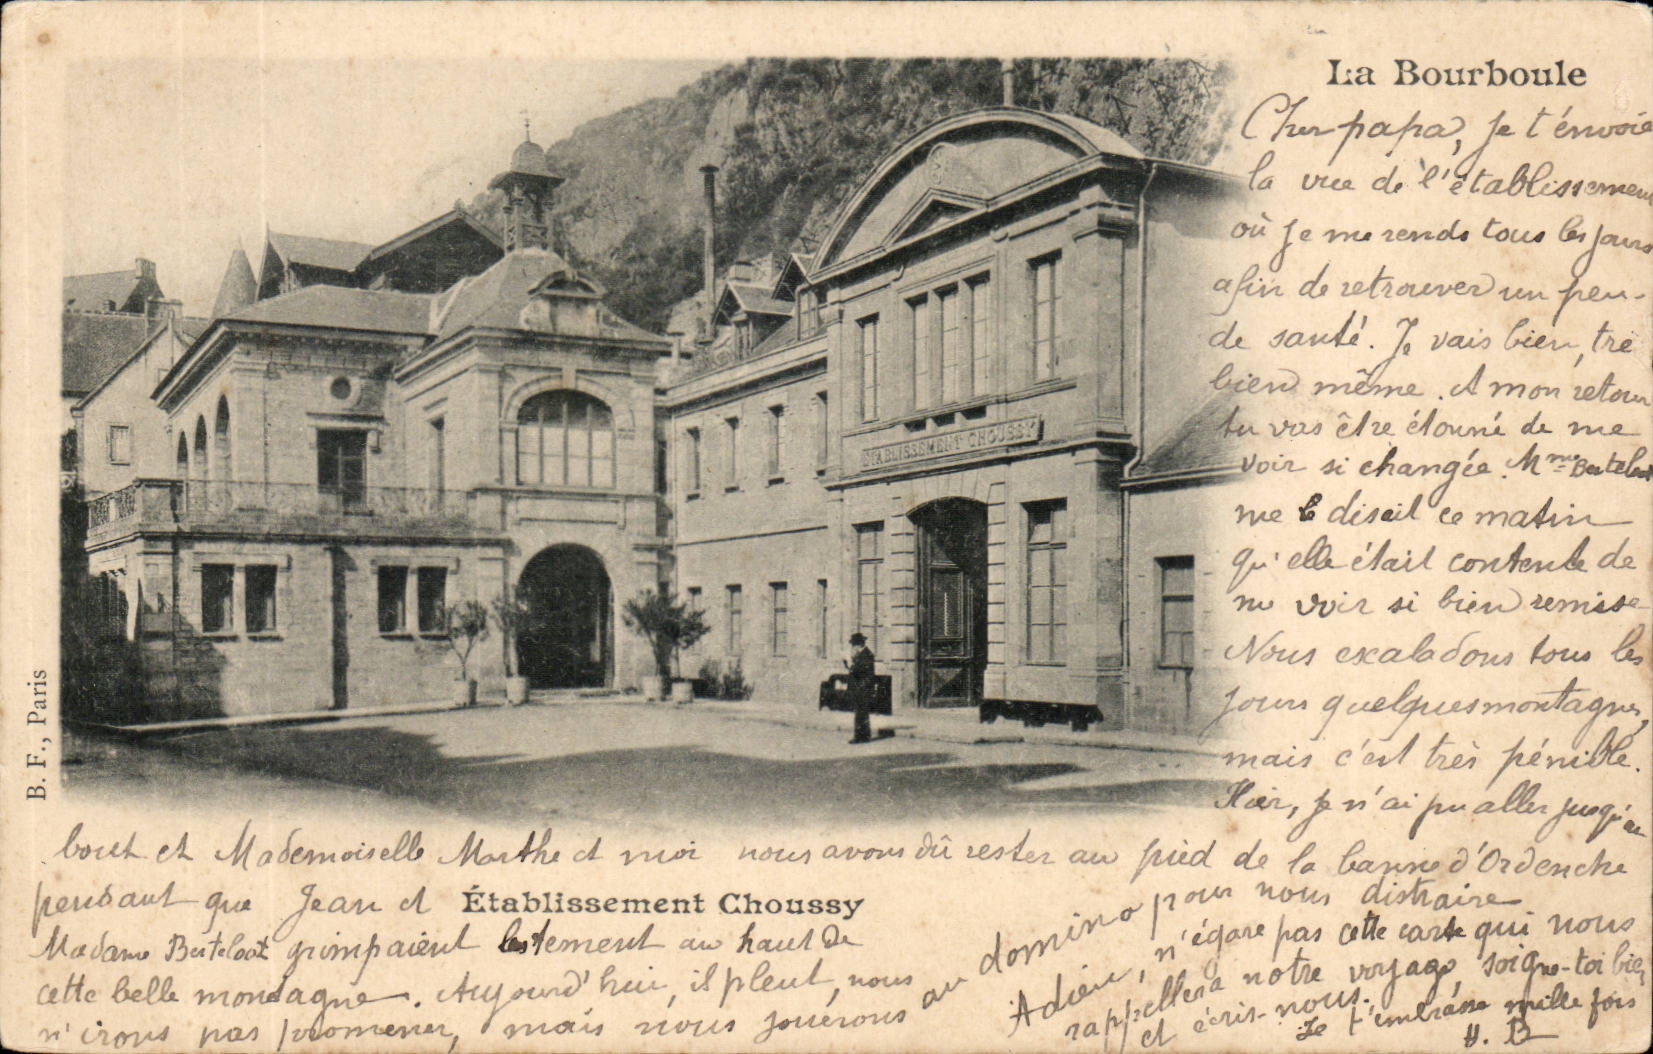 La Bourboule
Cher papa, Je t'envoie
la vue de l'établissement
où je me rends tous les jours
afin de retrouver un peu
de santé. Je vais bien, trè
bien même. A mon retour
tu vas être étonné de me
voir si changée. Mme Berteloot
me le disait ce matin
qu'elle était contente de
me voir si bien remise
Nous excaladons tous les
jours quelques montagnes,
mais c'est très pénible.
Hier, je n'ai pu aller jusqu'au
bout et Mademoiselle Marthe et moi nous avons dû rester au pied de la banne d'Ordenche
pendant que Jean et
Madame Berteloot grimpaient lestement au haut de
cette belle montagne. Aujourd'hui, il pleut, nous
n'irons pas promener, mais nous jouerons
au domino pour nous distraire
Adieu, n'égare pas cette carte qui nous
rappellera notre voyage, soigne-toi bien
et écris-nous.
Je t'embrasse mille fois
H. B
Établissement Choussy
ÉTABLISSEMENT CHOUSSY
B. F., Paris